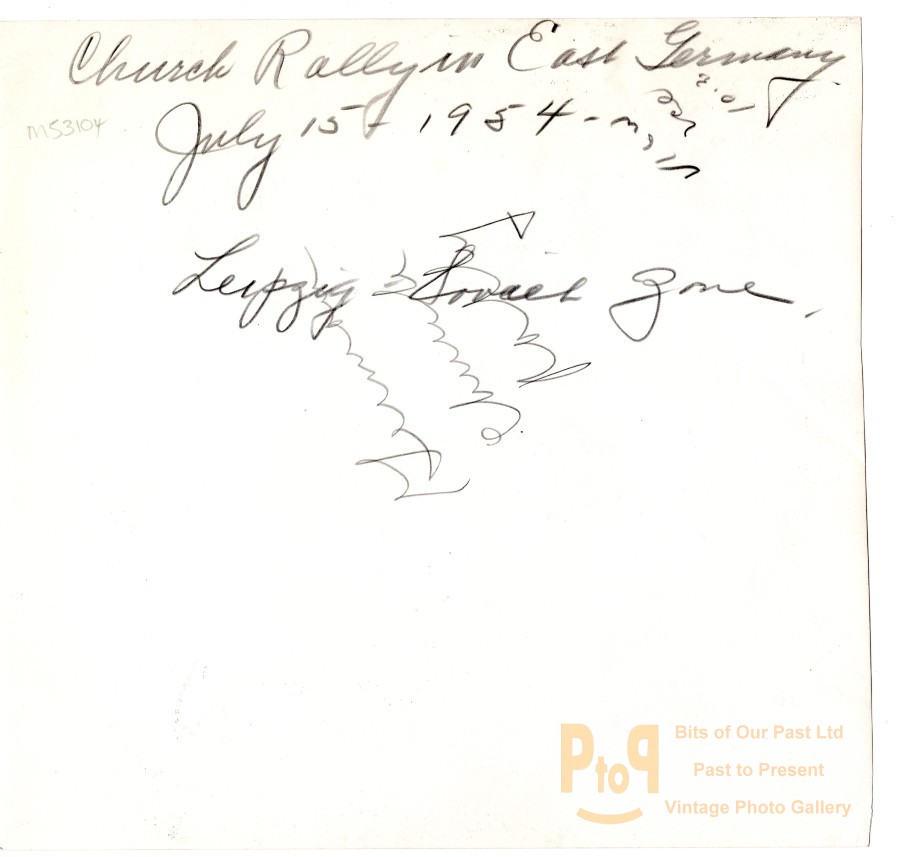 Church Rally in East Germany
M53104
July 15 - 1954 -
Leipzig - Soviet Zone.
PtoP
Bits of Our Past Ltd
Past to Present
Vintage Photo Gallery